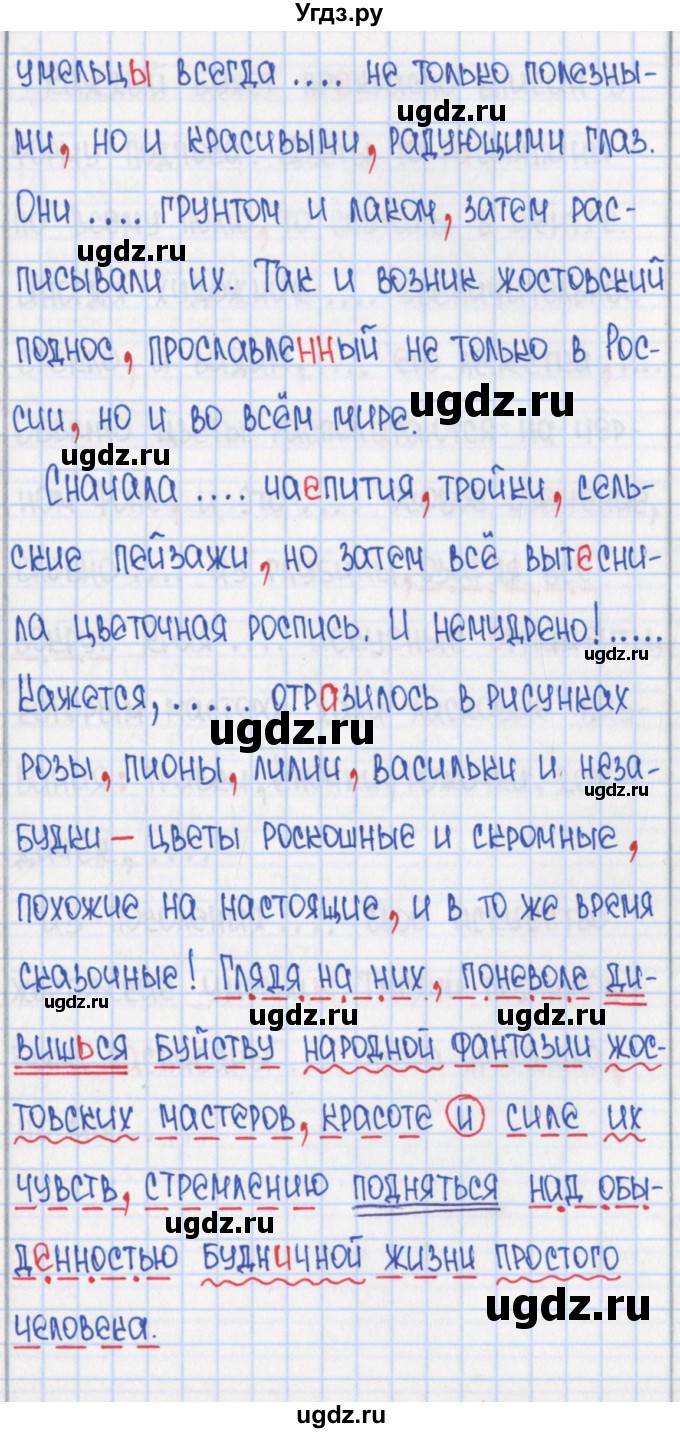 Угдз.ру
умельцы всегда .... не только полезны-
ми, но и красивыми, радующими глаз.
ugdz.ru
Они .... грунтом и лаком, затем рас-
ugdz.ru
писывали их. Так и возник жостовский
поднос, прославленный не только в Рос-
ugdz.ru
сии, но и во всём мире.
ugdz.ru
Сначала .... чаепития, тройки, сель-
ские пейзажи, но затем всё вытесни-
ла цветочная роспись. И немудрено!.....
ugdz.ru
Кажется, ..... отразилось в рисунках
ugdz.ru
розы, пионы, лилии, васильки и неза-
ugdz.ru
будки – цветы роскошные и скромные,
похожие на настоящие, и в то же время
сказочные! Глядя на них, поневоле ди-
ugdz.ru
ugdz.ru ugdz.ru
вишься буйству народной фантазии жос-
товских мастеров, красоте и силе их
чувств, стремлению подняться над обы-
ugdz.ru
денностью будничной жизни простого
ugdz.ru
человека.
ugdz.ru